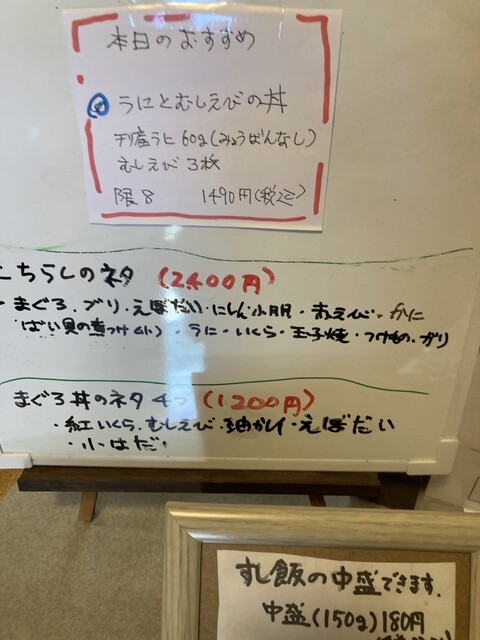 本日のおすすめ
うにとむしえびの丼
うに60g(みょうばんなし)
むしえび 3枚
限8 1490円(税込)
ちらしのネタ (2400円)
・まぐろ・ブリ・えぼだい・にしん・小肌・赤えび・かに
ばい貝の煮つけ(小)・うに・いくら・玉子焼・つけもの・ガリ
まぐろ丼のネタ 4つ (1200円)
・紅いくら・むしえび・油がレイ・えぼだい
・小はだ
すし飯の中盛できます.
中盛(150g)180円